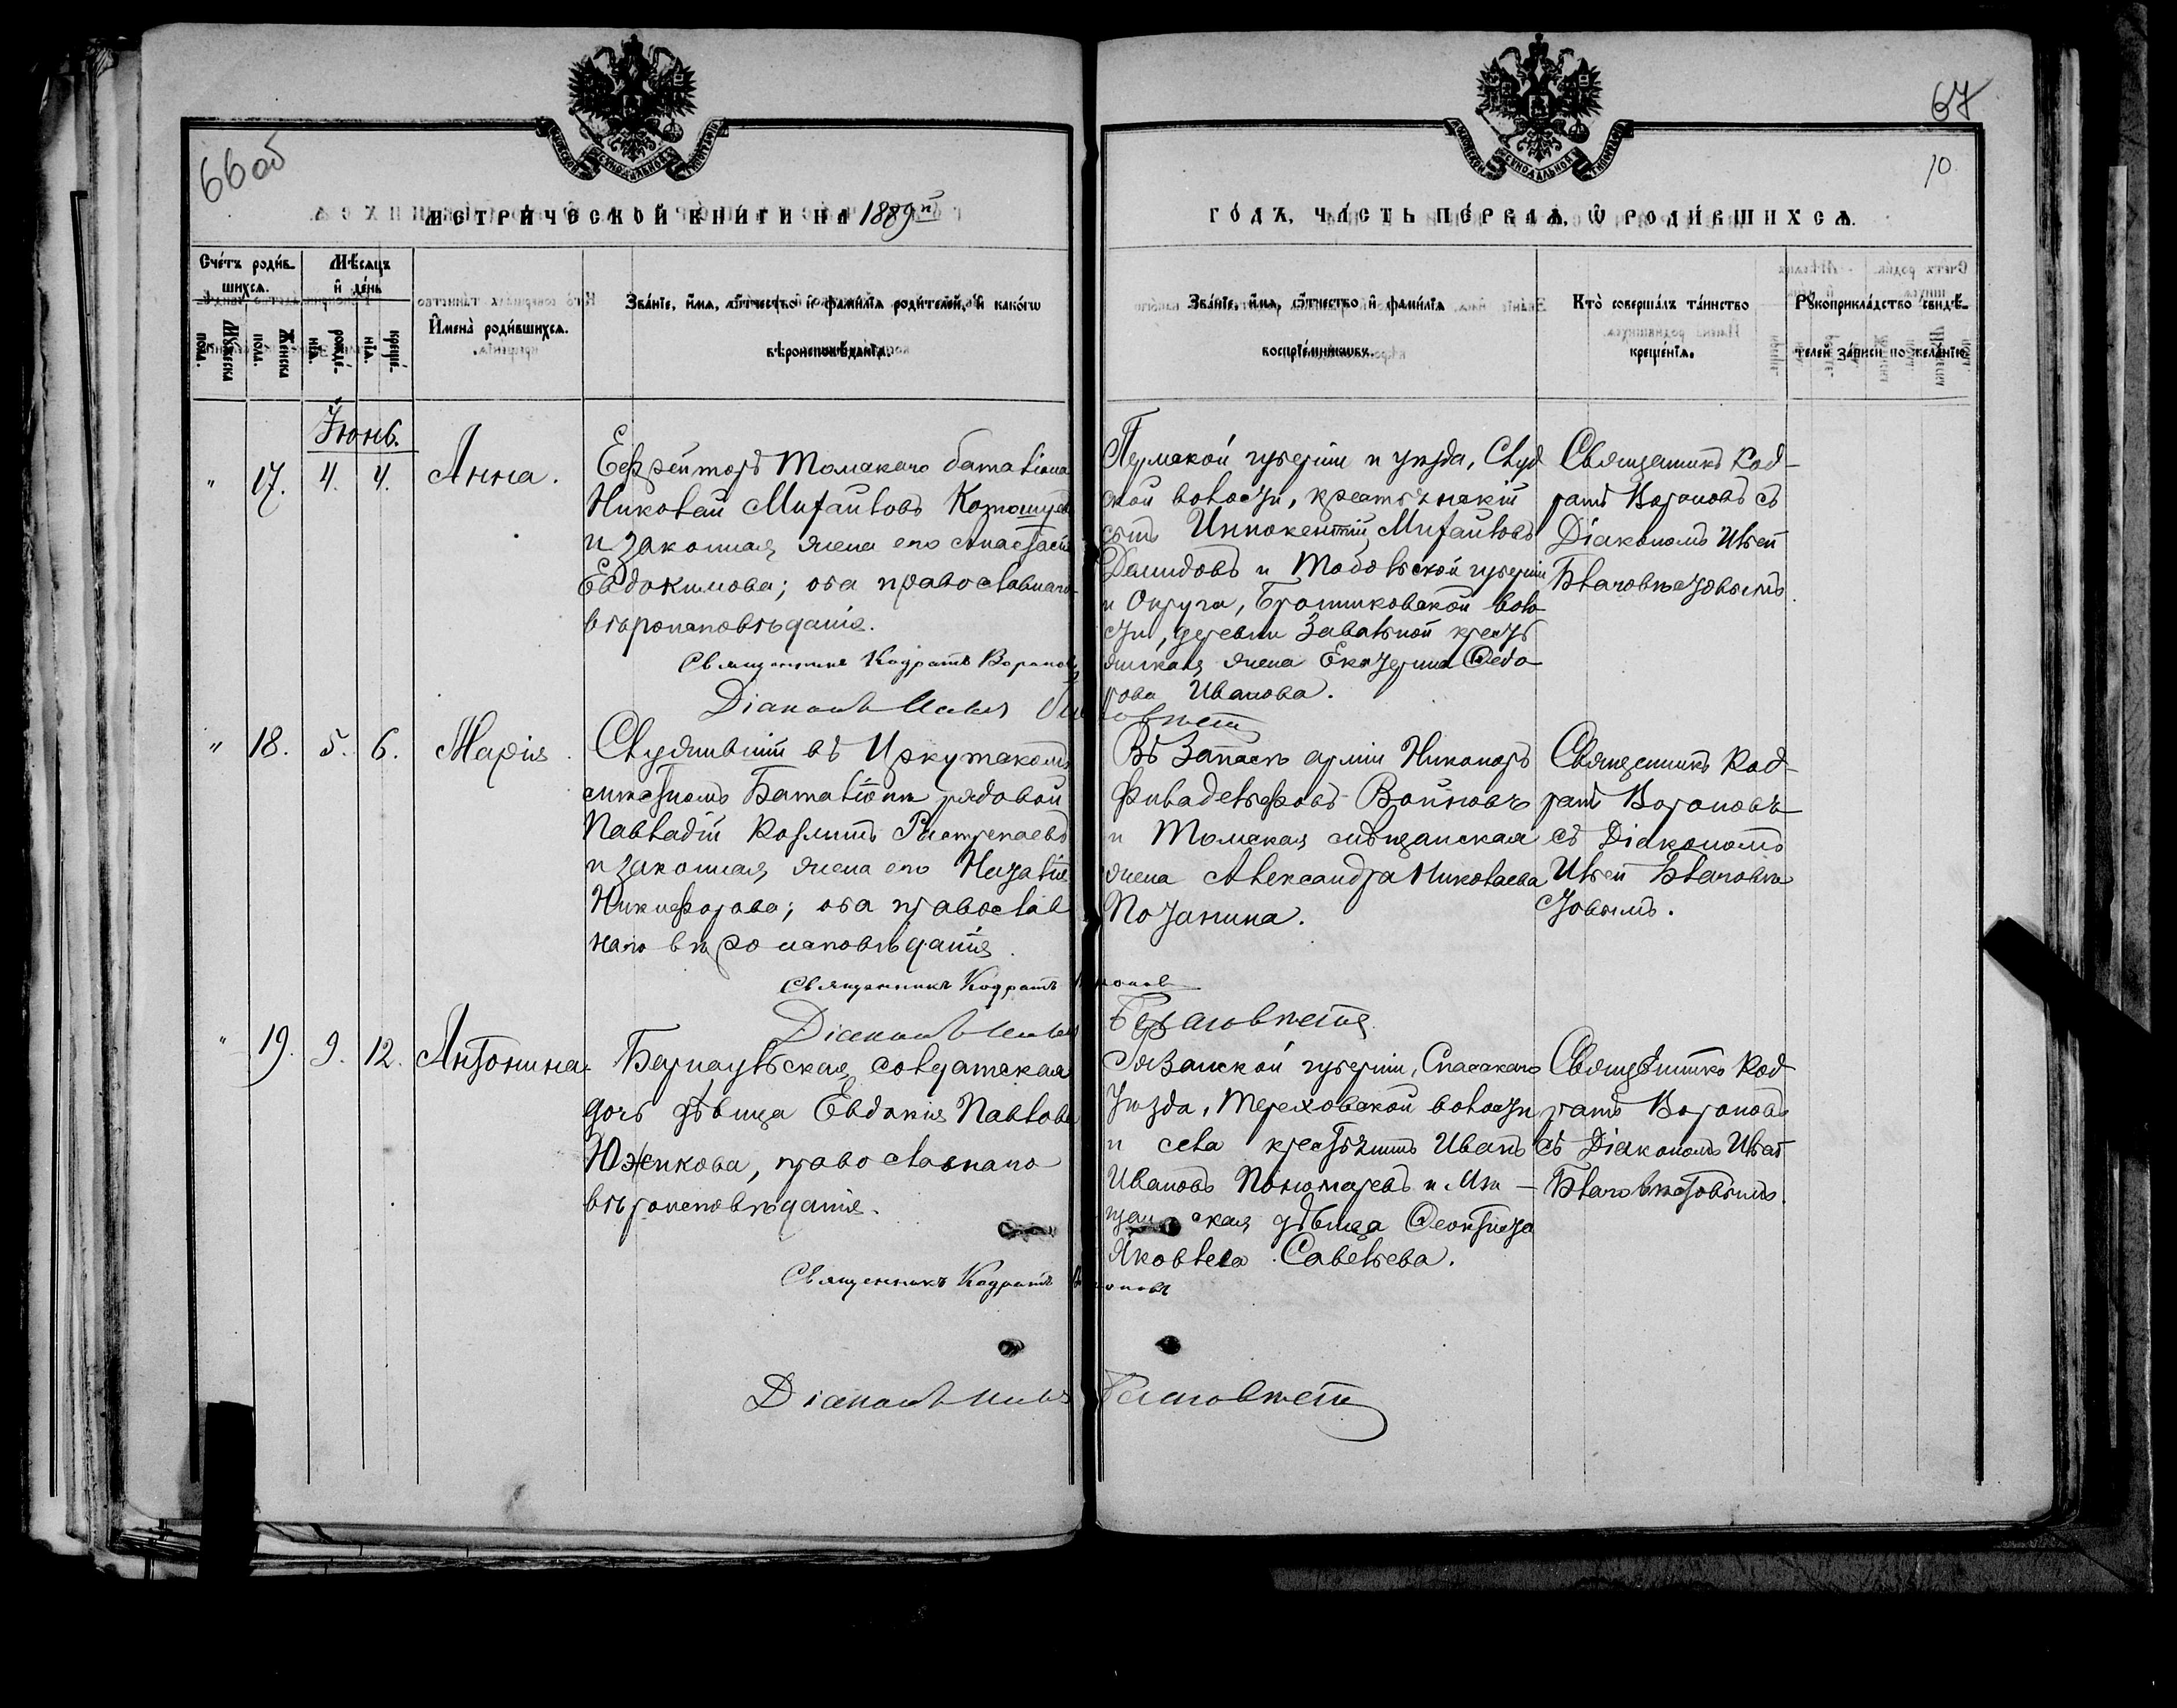 66 об
67
10
МЕТРИ́ЧЕСКОЙ КНИ́ГИ НА 1889й
ГО́ДЪ, ЧА́СТЬ ПЕ́РВАѦ, Ѡ҆ РОДИ́ВШИХСѦ.
Сче́тъ роди́в-
шихсѧ.
Мꙋ́жеска
пола.
Же́нска
пола.
Мѣ́сѧцъ
и҆ де́нь
рожде́-
нїѧ.
креще́-
нїѧ.
И҆мена̀ роди́вшихсѧ.
Зва́нїе, и҆́мѧ, ѻ҆́тчество и҆ фами́лїѧ роди́телей, и҆ како́гѡ
вѣроисповѣ́данїѧ.
Зва́нїе, и҆́мѧ, ѻ҆́тчество и҆ фами́лїѧ
воспрїе́мникѡвъ.
Кто̀ соверша́лъ та́инство
креще́нїѧ.
Рꙋкоприкла́дство свидѣ́-
телей за́писи по жела́нїю.
Іюнь.
" 17. 4. 4. Анна.
Ефрейторъ Томскаго баталіона
Николай Михайловъ
и законная жена его Анастасія
Евдокимова; оба православнаго
вѣроисповѣданія.
Священникъ Кодратъ Вороновъ
Діаконъ Илья
Пермской губерніи и уѣзда, Слуд
ской волости, крестьянскій
сынъ Иннокентій Михайловъ
Демидовъ и Тобольской губерніи
и Округа, Бронниковской воло
сти, деревни Завальной кресть
янская жена Екатерина Ѳедо-
рова Иванова.
Священникъ Код-
ратъ Вороновъ съ
Діакономъ Ильей
Благовѣстовымъ.
" 18. 5. 6. Марія.
Служившій въ Иркутскомъ
мѣстномъ Баталіонѣ рядовой
Палладій Козминъ
и законная жена его Наталія
Никифорова; оба православ
наго вѣроисповѣданія.
Священникъ Кодратъ Вороновъ
Діаконъ Илья Благовѣстовъ
Въ запасѣ арміи Никаноръ
Филадельфовъ Войновъ
и Томская мѣщанская
жена Александра Николаева
Потанина.
Священникъ Код-
ратъ Вороновъ
съ Діакономъ
Ильей Благовѣ
стовымъ.
" 19. 9. 12. Антонина.
Барнаульская солдатская
дочь дѣвица Евдокія Павлова
Южикова, православнаго
вѣроисповѣданія.
Священникъ Кодратъ Вороновъ
Діаконъ Илья Благовѣстовъ
Рязанской губерніи, Спасскаго
Уѣзда, Тереховской волости
и села крестьянинъ Иванъ
Ивановъ Пономаревъ и Мѣ-
щанская дѣвица Ѳеоктиста
Яковлева Савельева.
Священникъ Код
ратъ Вороновъ
съ Діакономъ Ильей
Благовѣстовымъ.